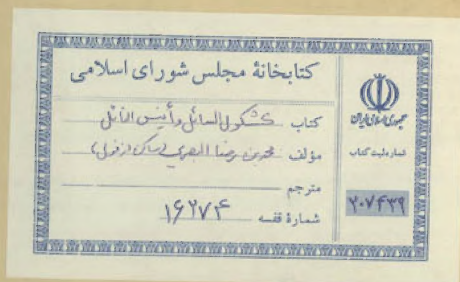 کتابخانهٔ مجلس شورای اسلامی
کتاب کشکول السائل و أنیس الآئل
مؤلف محمد بن رضا البصری (ساکن دزفول)
مترجم
شمارهٔ قفسه ۱۶۲۷۴
جمهوری اسلامی ایران
شماره ثبت کتاب
۲۰۷۴۳۹